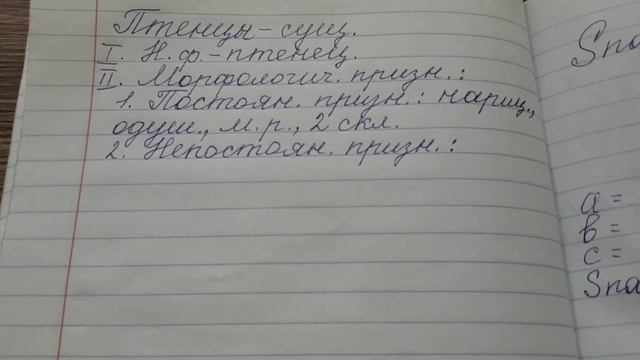 Птенцы-сущ.
I. Н.ф.-птенец.
II. Морфологич. призн.:
1. Постоян. призн.: нариц.,
одуш., м.р., 2 скл.
2. Непостоян. призн.:
a =
b =
c =